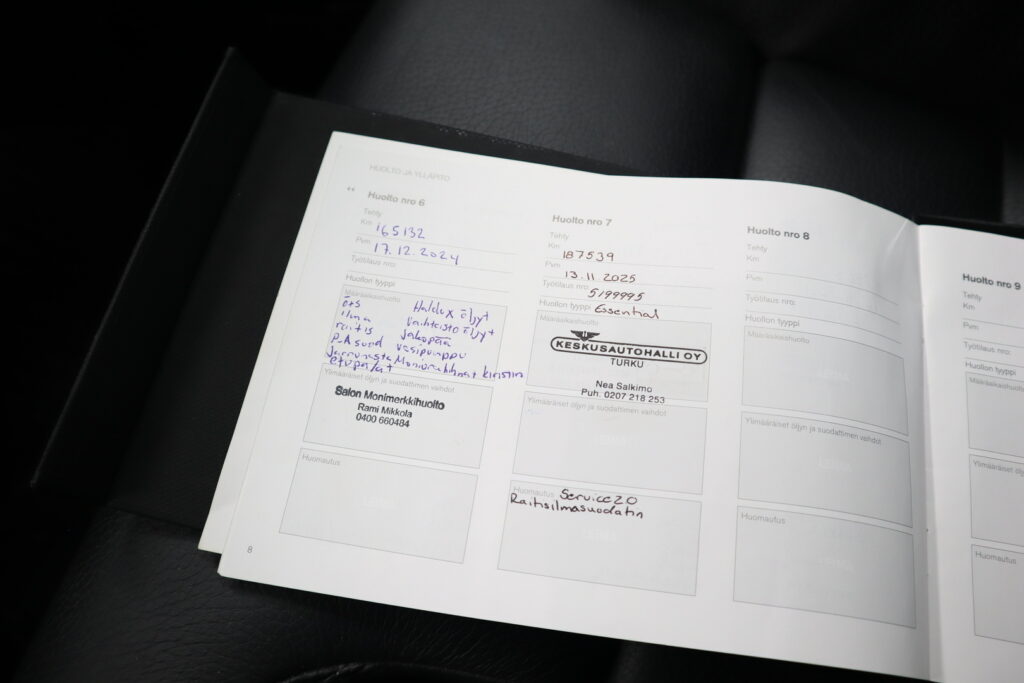 HUOLTO JA YLLÄPITO
Huolto nro 6
Tehty
Km 165132
Pvm 17.12.2024
Työtilaus nro:
Huollon tyyppi
Määräaikaishuolto
Haldex öljyt
ilma vaihteisto öljyt
raitis jakopää
P-A suod vesipumppu
etupalat
Ylimääräiset öljyn ja suodattimen vaihdot
Salon Monimerkkihuolto
Rami Mikkola
0400 660484
Huomautus
8
Huolto nro 7
Tehty
Km 187539
Pvm 13.11.2025
Työtilaus nro: 5199995
Huollon tyyppi Essential
Määräaikaishuolto
KESKUSAUTOHALLI OY
TURKU
Nea Salkimo
Puh. 0207 218 253
Ylimääräiset öljyn ja suodattimen vaihdot
LEIMA
Huomautus Service20
Raitisilmasuodatin
LEIMA
Huolto nro 8
Tehty
Km
Pvm
Työtilaus nro:
Huollon tyyppi
Määräaikaishuolto
LEIMA
Ylimääräiset öljyn ja suodattimen vaihdot
LEIMA
Huomautus
LEIMA
Huolto nro 9
Tehty
Km
Pvm
Työtilaus nro:
Huollon tyyppi
Huomautus